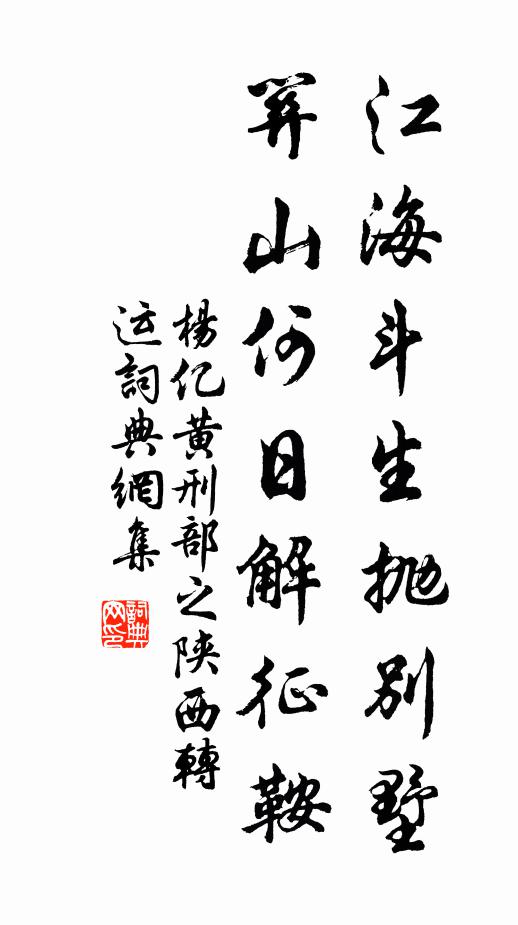 江海斗生抛別墅
關山何日解征鞍
楊亿黄刑部之陝西轉
运詞典網集
詞典
网印